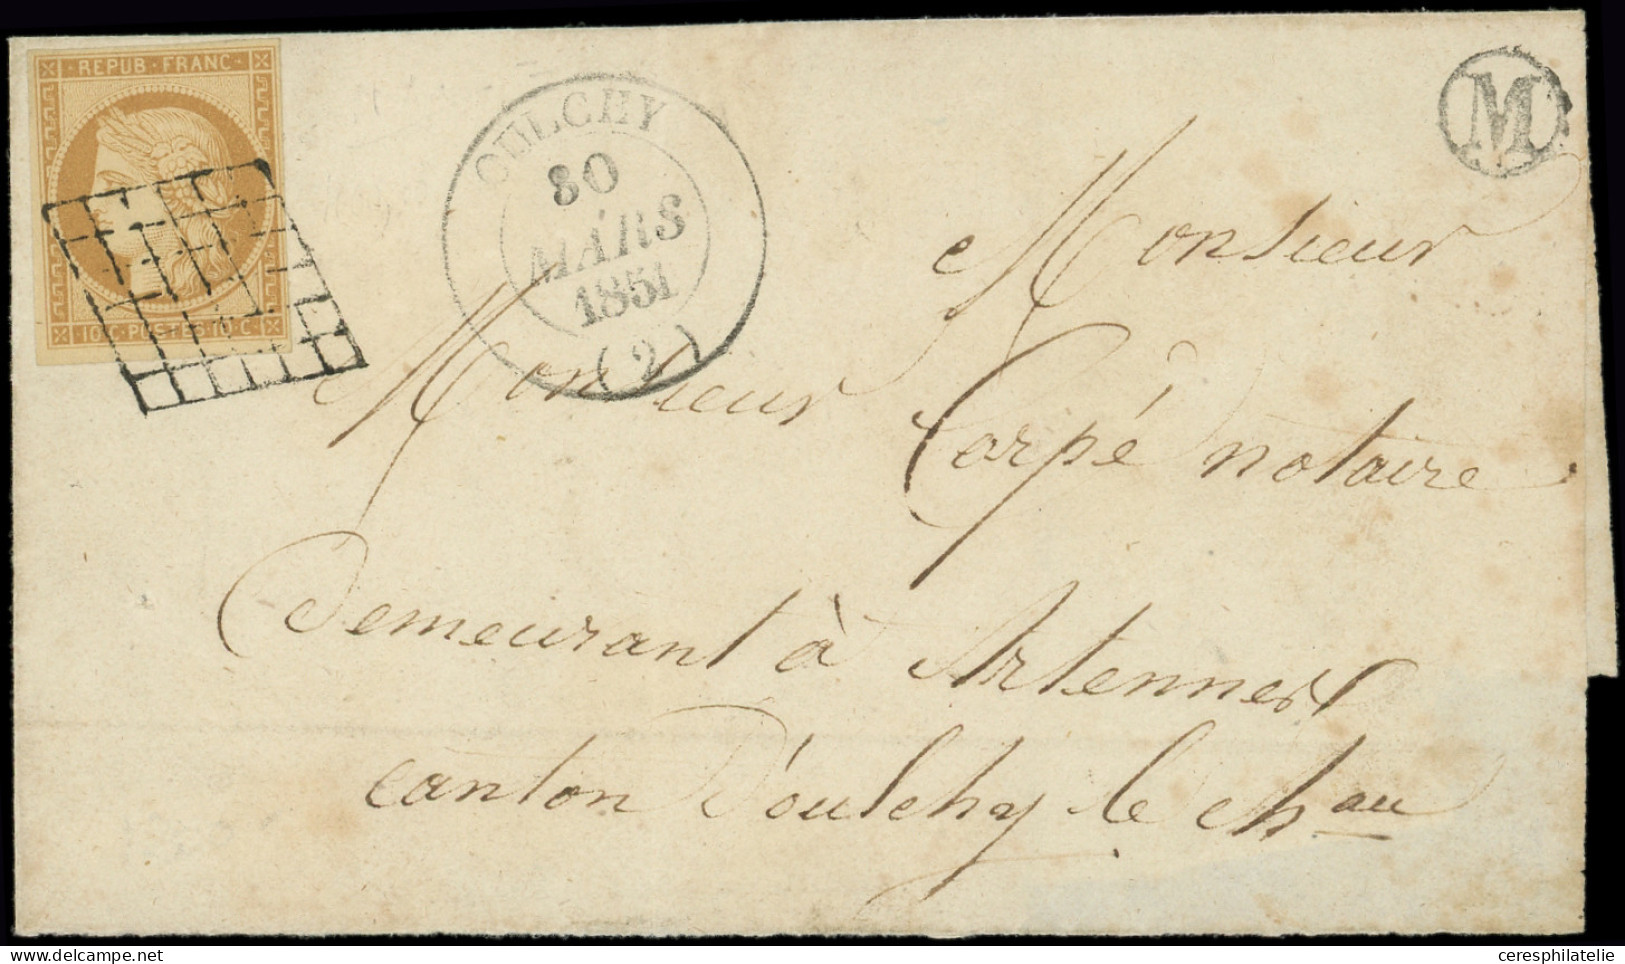 REPUB · FRANC ·
10 C · POSTES 10 C ·
OULCHY
30
MARS
1851
(2)
M
Monsieur
Monsieur Carpé notaire
Demeurant à Artennes
canton D'oulchy le chau
ceresphilatelie